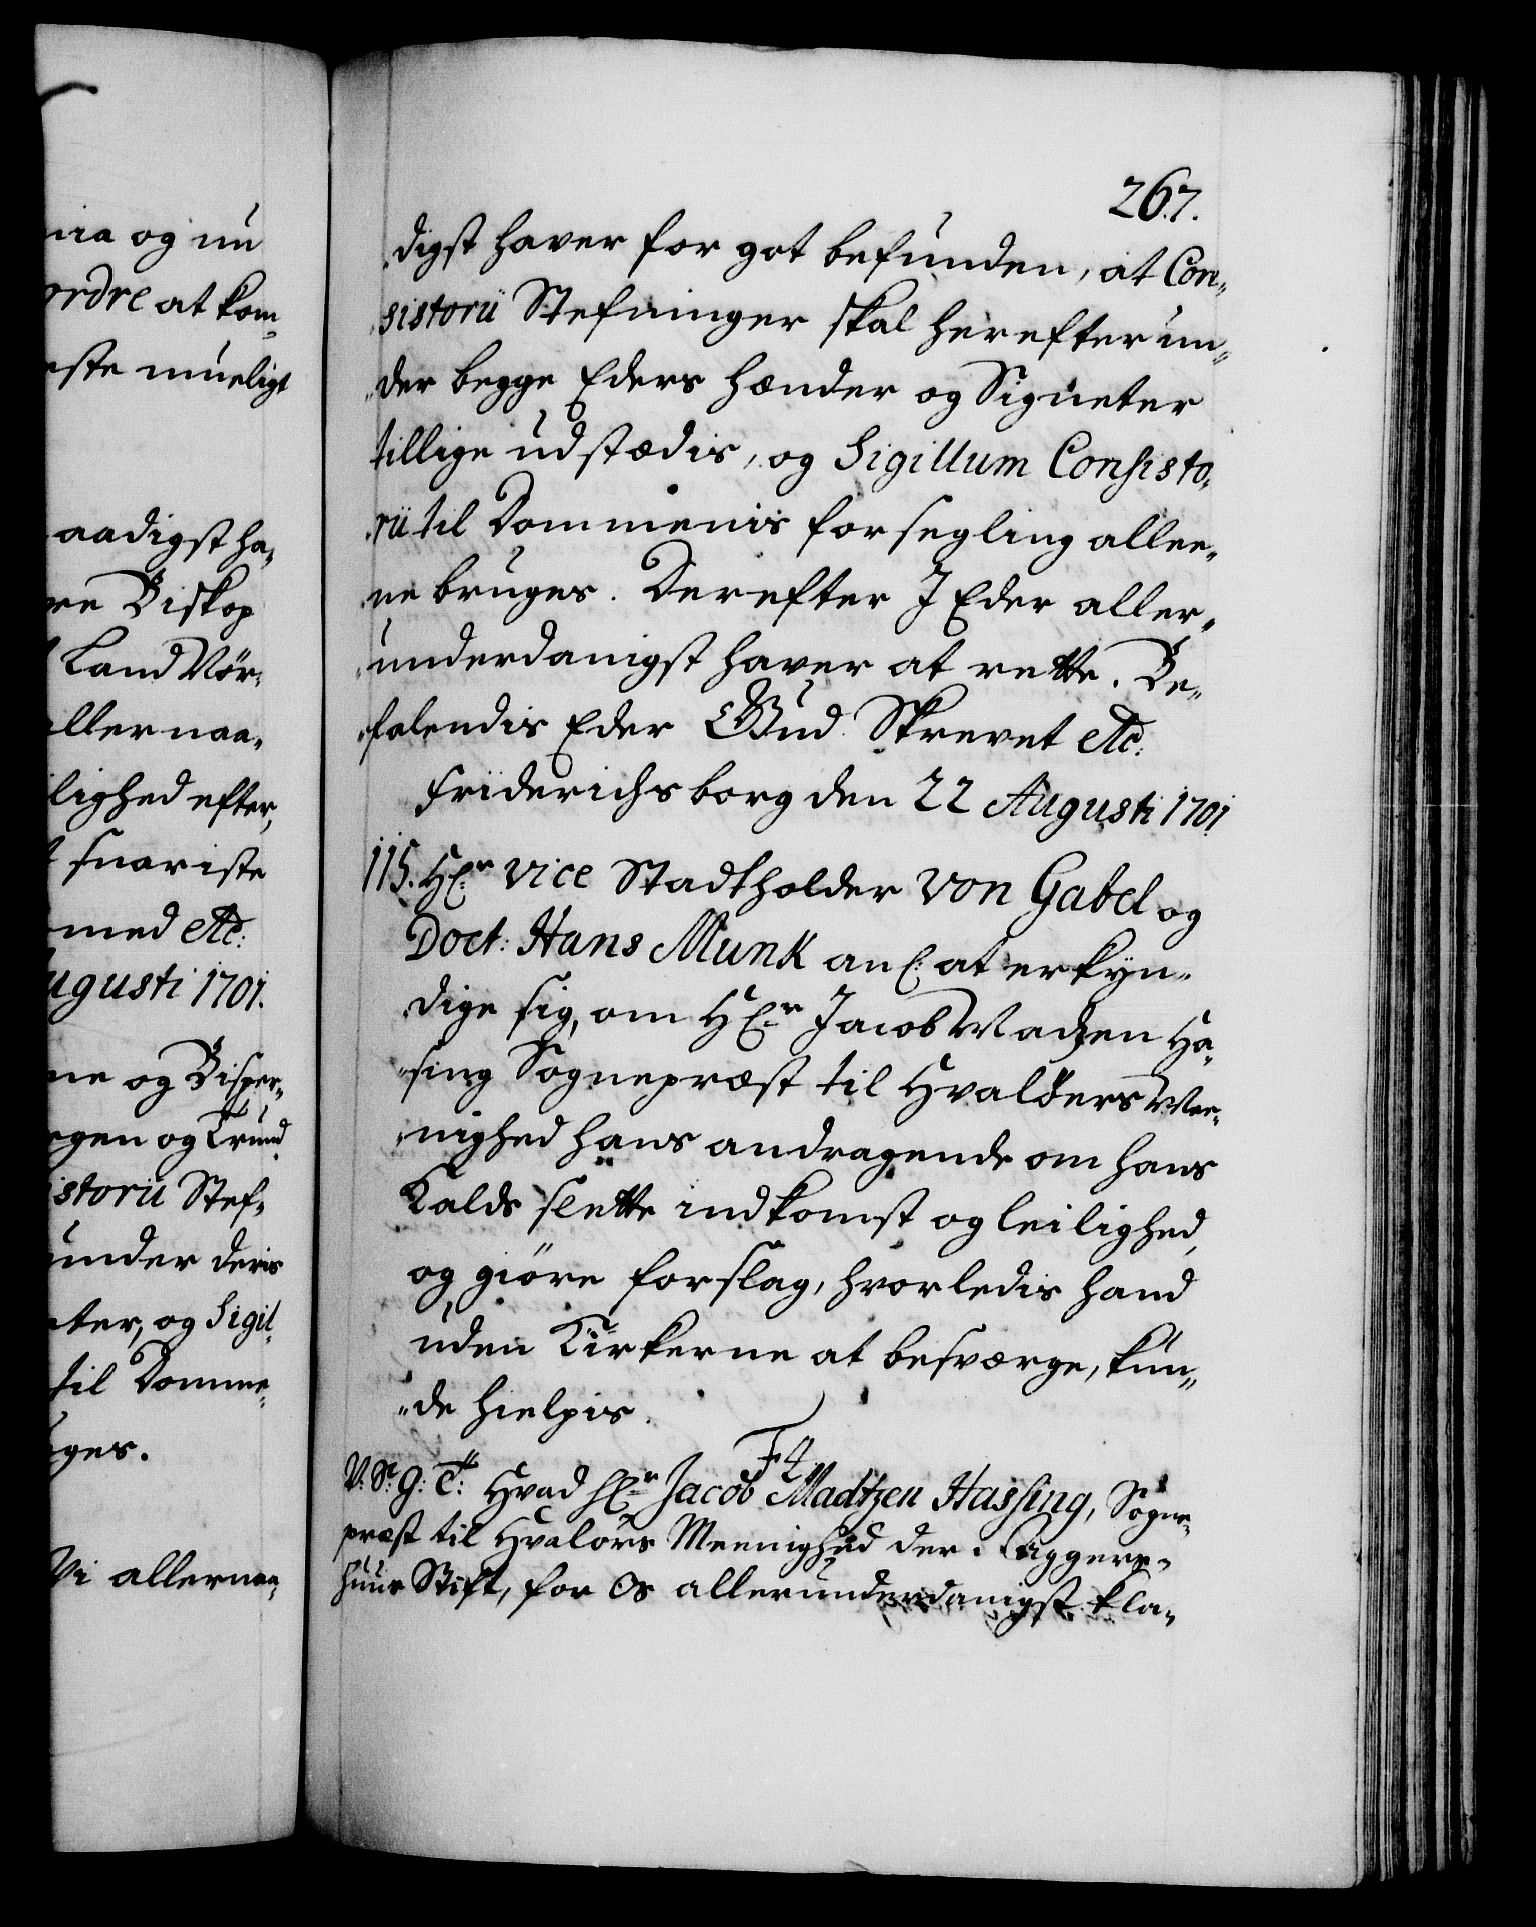 nia og nu
ordre at kom-
este mueligt
aadigst ha-
re Biskop
Land Nør-
allernaa-
lighed efter,
snariste
med etc:
Augusti 1701.
ne og Disper-
egen og Trund
istorii Stef-
under deris
eter, og Sigil-
til Domme-
uges.
Vi allernaa-
267.
digst haver for got befunden, at Con-
sistorii Stefninger skal herefter un-
der begge Eders Hænder og Signeter
tillige udstædis, og Sigillum Consisto-
rii til Dommenis forsegling allee-
ne bruges. Derefter I Eder aller-
underdanigst haver at rette. Be-
falendis Eder Gud. Skrevet etc:
Friderichsborg den 22 Augusti 1701
115. Hr. Vice Stadtholder von Gabel og
Doct: Hans Munk anl: at erkyn-
dige sig, om Hr. Jacob Madzen Ha-
sing Sognepræst til Hvalöers Mee-
nighed hans andragende om hans
Kalds slette indkomst og leilighed,
og giöre forslag, hvorledis hand
uden Kirkerne at besværge, kun-
de hielpis.
F4
V. Sr. G: T: Hvad Hr. Jacob Madtzen Hassing, Sogne-
præst til Hvalörs Meenighed der i Aggers-
huus Stift, for Os allerunderdanigst kla-